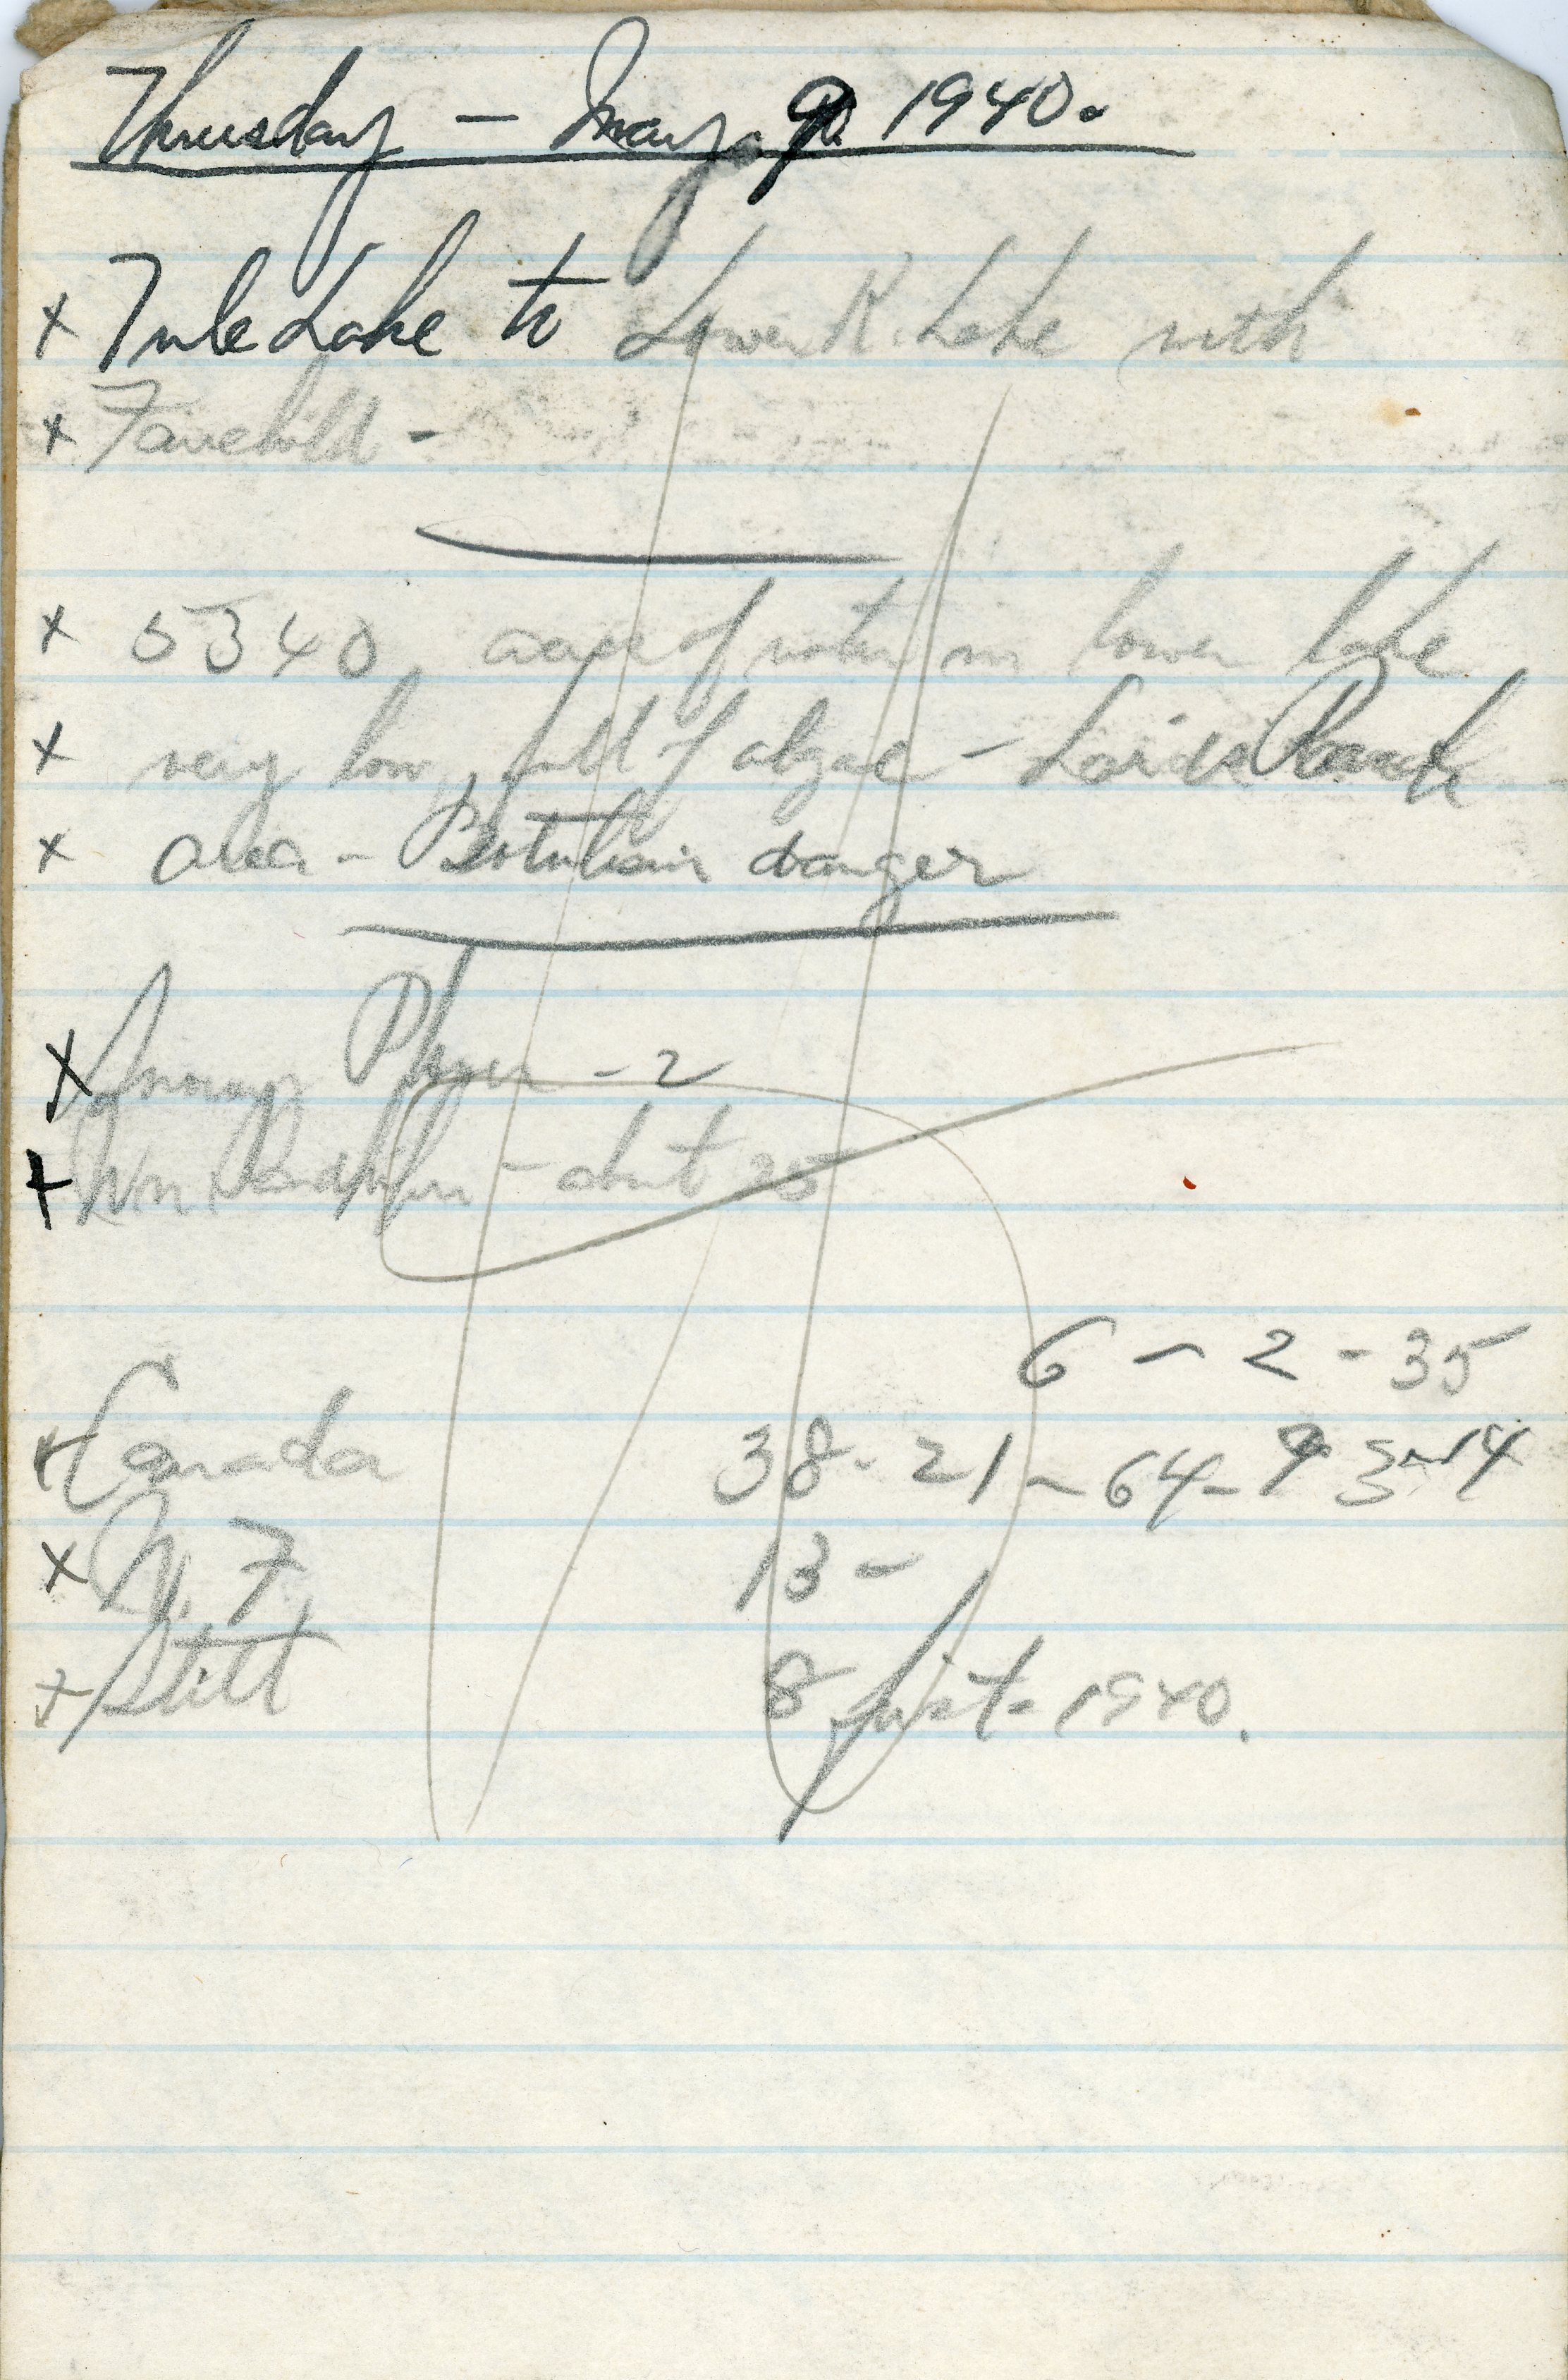 Thursday - May 9. 1940.
x Tule Lake to Lower K. Lake with
x Fairchild -
x 5340 acres of water in lower lake
x very low, full of algae - Lairds Ranch
x area - Botulism danger
x Snowy Plover - 2
x Wn. Sandpiper - about 25
6 - 2 - 35
x Canada 38 - 21 - 64 - 9 3 - 14
x W. F. 13 -
x Stilt 8 first - 1940.